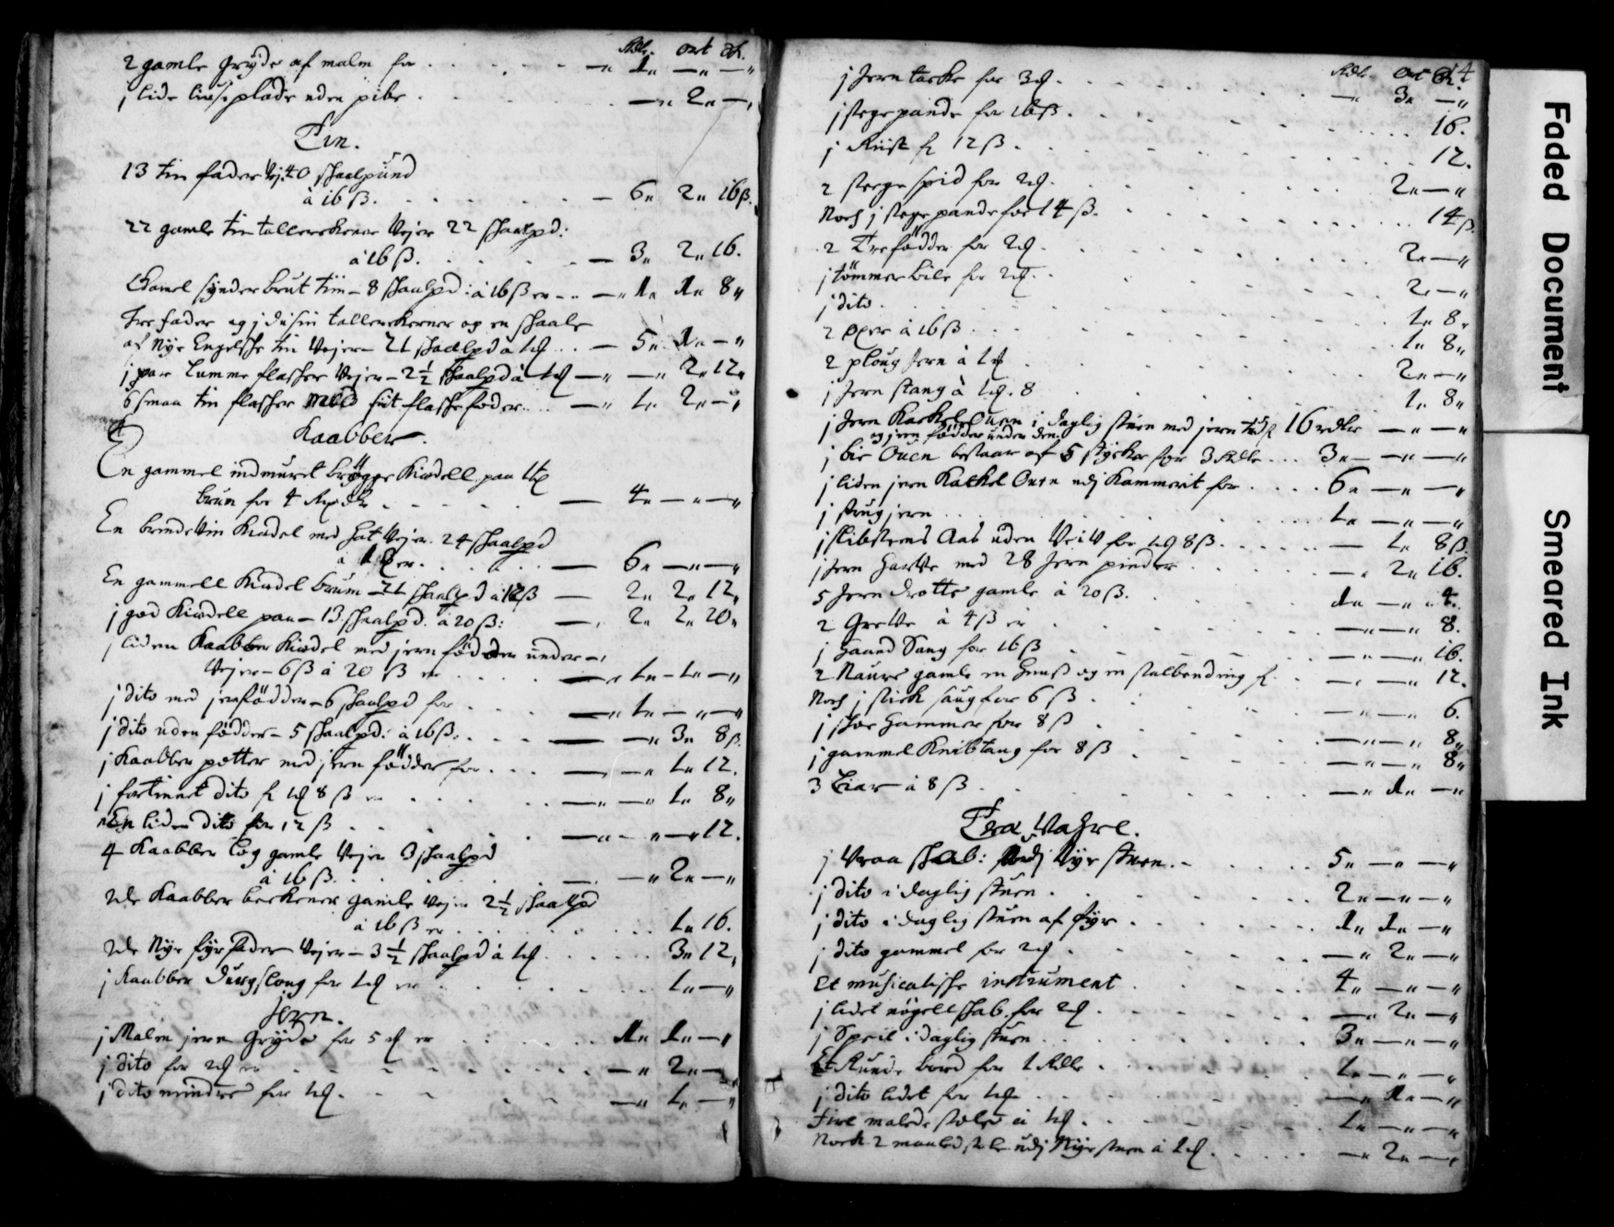 Rdlr. ort ß.
2 gamle gryde af malm for . . . . — 1„ — „ — „
j lide liuse plade uden pibe . . . . — „ 2„ — „
Tin.
13 tin fader Vej: 40 skaalpund
à 16 ß. . . . . — 6„ 2„ 16 ß.
22 gamle tin tallerckener Vejer 22 skaalpd:
à 16 ß. . . . . — 3„ 2„ 16.
Gamel synder brut tin — 8 skaalpd: à 16 ß er — „ 1„ 1„ 8„
tre fader og j dusin tallerckener og en skaale
af Nye Engelsche tin Vejer — 21 skaalpd à 1 . . . — 5„ 1„ — „
j par lumme flasker Vejer — 2½ skaalpd à 1 — „ — „ 2„ 12„
6 smaa tin flasker med sit flaskefoder . . — „ 1„ 2„ — „
Kaabber.
En gammel indmuret brygge Kiedell paa 1
brun for 4 . . . . — 4„ — „ — „
En brendeVin Kiedel med hat Vejer 24 skaalpd
à 1 er . . . . — 6„ — „ — „
En gammell Kiedel brum — 21 skaalpd à 12 ß — 2„ 2„ 12„
j god Kiedell paa — 13 skaalpd. à 20 ß: — „ 2„ 2„ 20„
j liden Kaabber Kiedel med jern fødder under —
Vejer — 6 ß à 20 ß er . . . . — „ 1„ — 1„ — „
j dito med jernfødder — 6 skaalpd for . . . — „ 1„ — „ — „
j dito uden fødder — 5 skaalpd: à 16 ß: . . . — „ 3„ 8 ß.
j Kaabber potter med jern fødder for . . . — „ — „ 1„ 12.
j fortinnet dito f 1 8 ß er . . . . — „ — „ 1„ 8„
En liden dito for 12 ß . . . . — „ — „ — „ 12.
4 Kaabber log gamle Vejer 3 skaalpd
à 16 ß . . . . — „ 2„ — „
2de Kaabber beckener gamle Vejer 2½ skaalpd
à 16 ß er . . . . 1„ 16.
2de Nye fyrfader Vejer — 3½ skaalpd à 1 . . . . 3„ 12„
j Kaabber Durgslag for 1 er . . . . 1„ — „
Jern.
j Malm jern Gryde for 5 er . . . . 1„ 1„ — „
j dito for 2 er . . . . — „ 2„ — „
j dito mindre for 1 . . . . — „ 1„ — „
Rdlr. Ort ß. 14
j Jern taske for 3 . . . . — „ 3„ — „
j stege pande for 16 ß . . . . 16.
j Riist f 12 ß . . . . 12.
2 steege spid for 2 . . . . 2„ — „
Noch j stege pande for 14 ß. . . . 14 ß.
2 Trefødder for 2 . . . . 2„ — „
j tømmer bile for 2 . . . . 2„ — „
j dito . . . . 1„ 8„
2 Øxer à 16 ß . . . . 1„ 8„
2 ploug Jern à 1 . . . . 2„ — „
j Jern stang à 1. 8 . . . . 1„ 8„
j Jern Kackel Ouen i daglig stuen med jern 16 rdlr — „ — „
og jern fødder under den
j bie Ouen bestaar af 5 stycker for 3 Rdlr . . . 3„ — „ — „
j liden jern Kackel Ouen udj Kammerit for . . . . 6„ — „ — „
j strug jern . . . . 1„ — „ — „
j slibsteens Aas uden for 1 8 ß . . . . — 1„ 8 ß.
j Jern Harve med 28 Jern pinder . . . . — „ 2„ 16.
5 Jern gamle à 20 ß. . . . 1„ — „ 4.
2 Greve à 4 ß er . . . . — „ — „ 8.
j Haand Saug for 16 ß . . . . — „ — „ 16.
2 Naure gamle en Huus og en stalbending f . . — „ — „ 12.
Noch j stick saug for 6 ß . . . . — „ — „ 6.
j skoe Hammer for 8 ß . . . . — „ — „ 8„
j gammel Knibtang for 8 ß . . . . — „ — „ 8„
3 Liar à 8 ß . . . . — „ 1„ — „
Træ Vahre.
j Vraa skab: udj Nye stuen . . . . 5„ — „ — „
j dito i daglig stuen . . . . 2„ — „ — „
j dito i daglig stuen af fyr . . . . 1„ 1„ — „
j dito gammel for 2 . . . . — „ 2„ — „
Et musicalische instrument . . . . 4„ — „ — „
j lidet nøgell skab for 2 . . . . — „ 2„ — „
j Speil i daglig stuen . . . . 3„ — „ — „
Et Runde bord for 1 Rdlr . . . . 1„ — „ — „
j dito lidet for 1 . . . . — „ 1„ — „
Fire malede stole à 1 . . . . 1„ — „ — „
Noch 2 maaled stole udj Nye stuen à 1 . . . . — „ 2„ — „
Faded Document
Smeared Ink